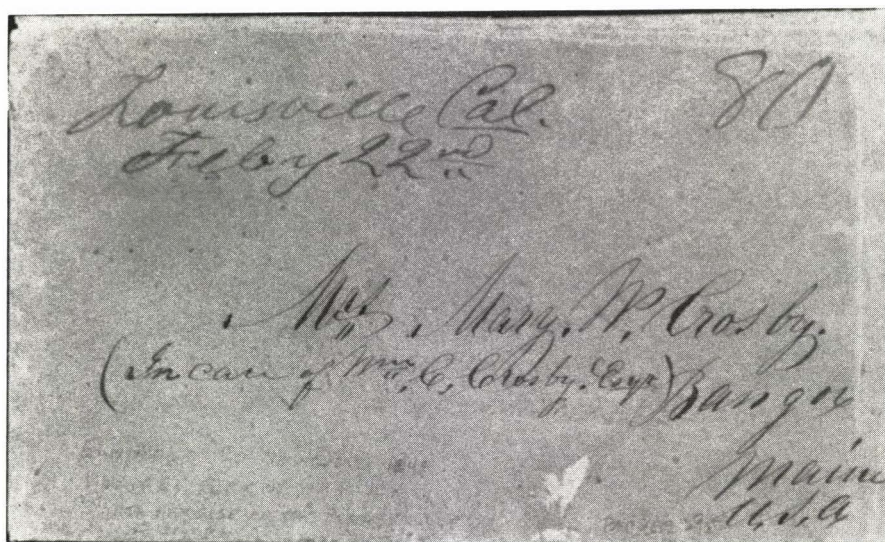 Louisville Cal. 80
Feby 22nd
Mrs. Mary. W. Crosby.
(In care of Wm. C. Crosby. Esqr) Bangor
Maine
U.S.A